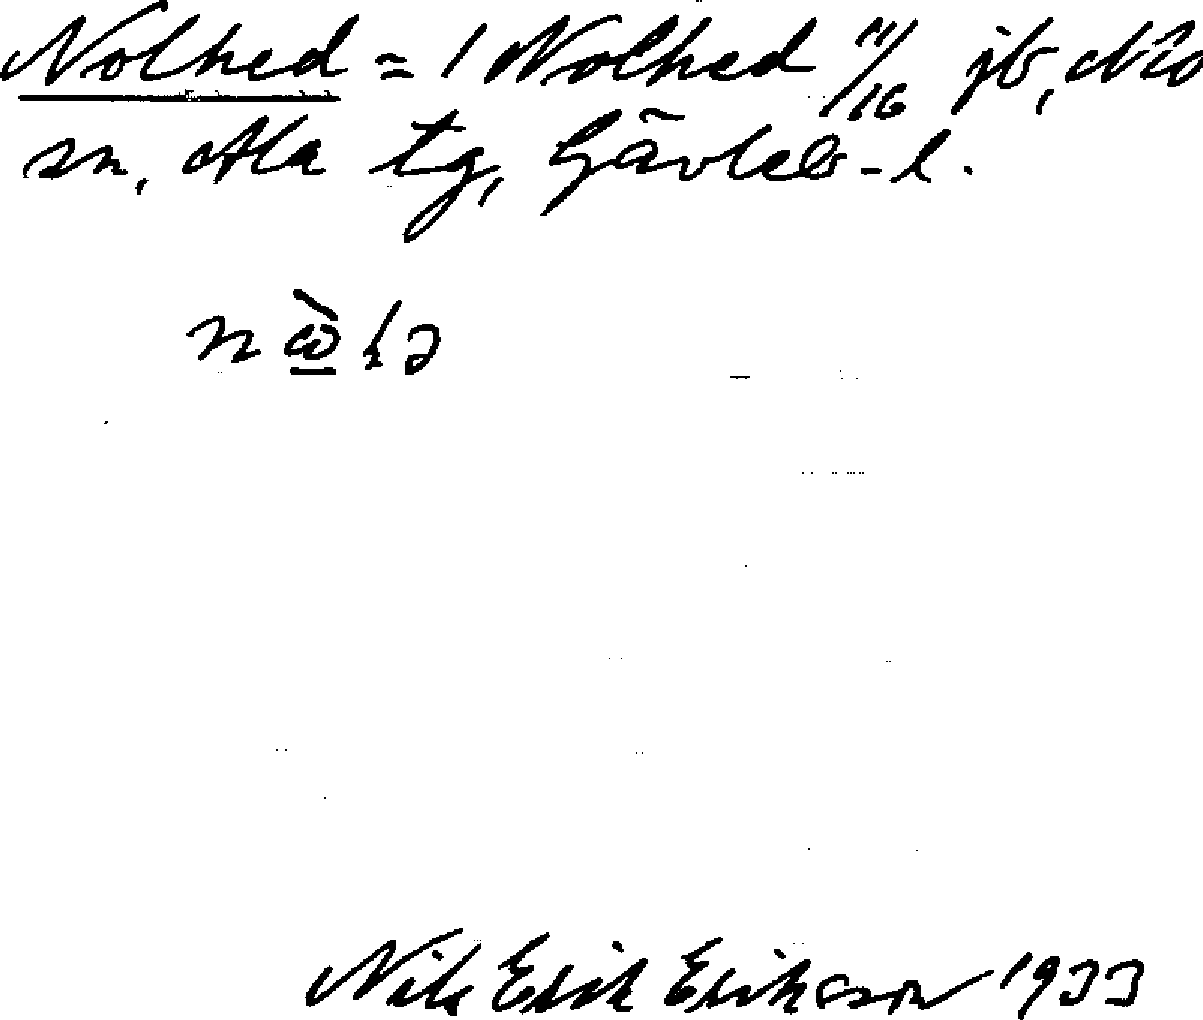 Nolhed = 1 Nolhed 11/16 jb, Alfta
sn, Ala tg, Gävleb-l.
Nils Erik Erikson 1933